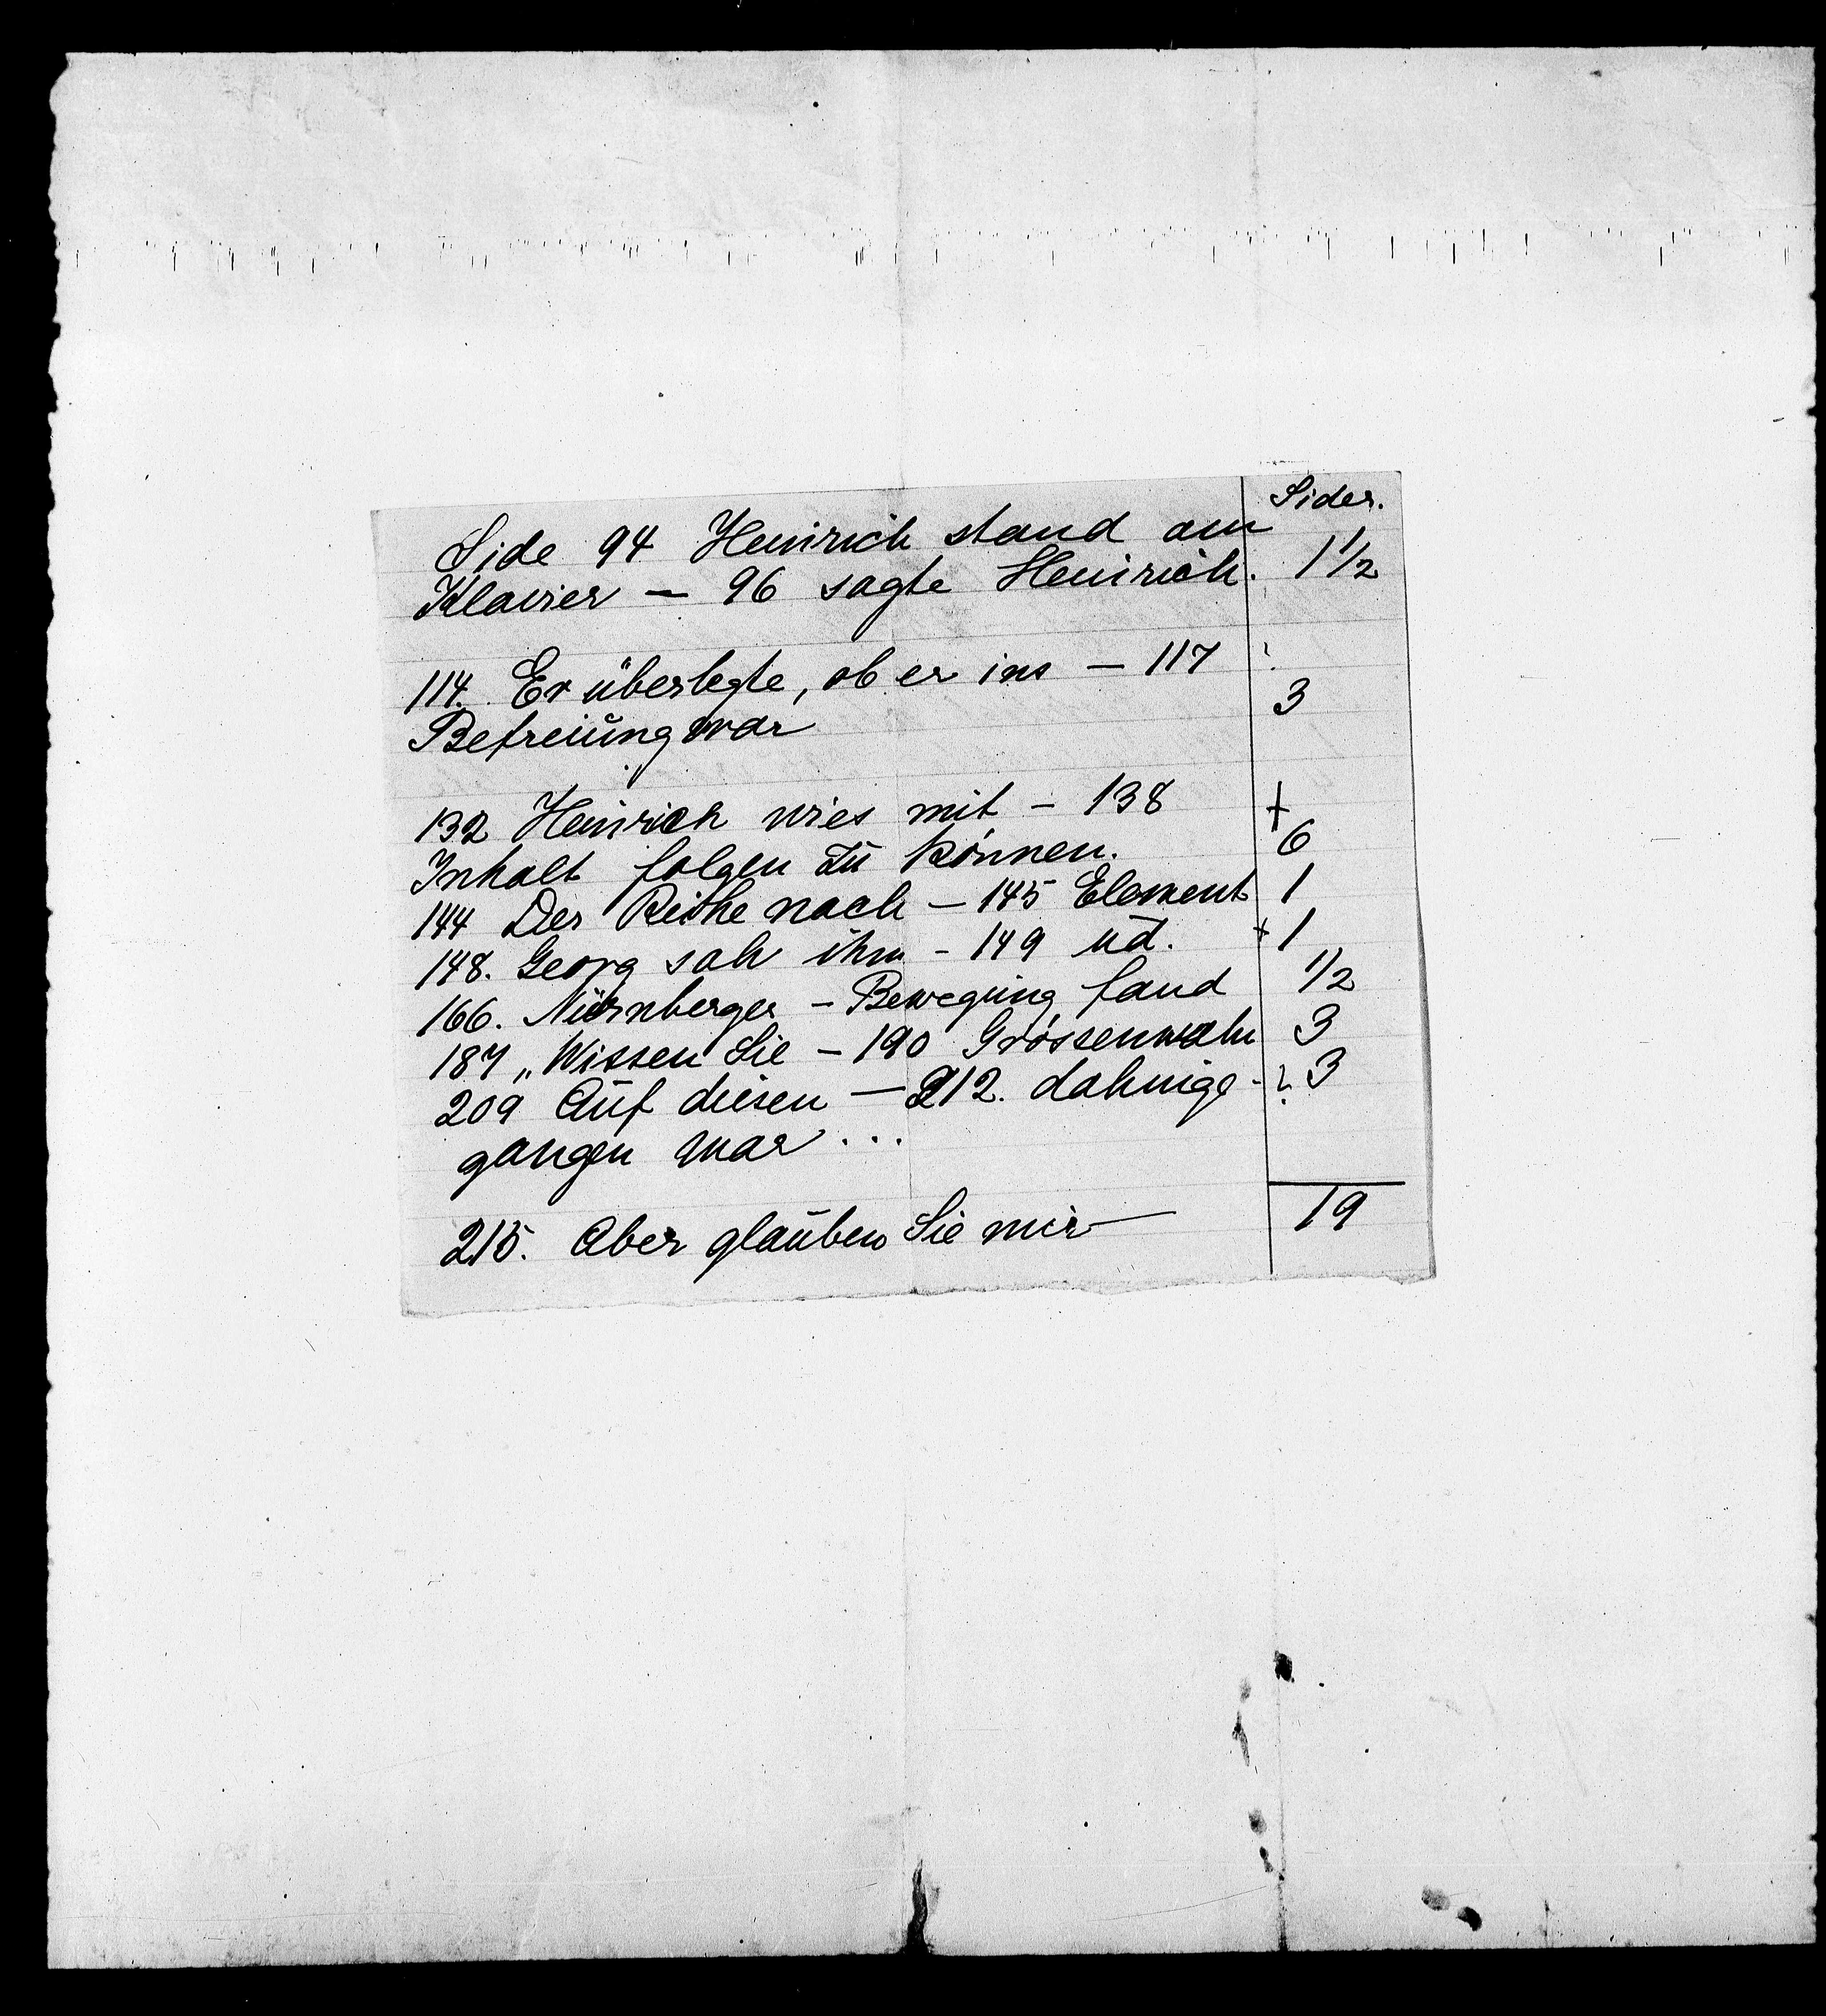 Sider.
Side 94 Heinrich stand am
Klavier — 96 sagte Heinrich. 1 1/2
114. Er überlegte, ob er ins — 117
Befreiung war 3
132 Heinrich wies mit — 138 +
Inhalt folgen zu können. 6
144 Der Reihe nach — 145 Element 1
148. Georg sah ihm - 149 ud. + 1
166. Nürnberger - Bewegung fand 1/2
187 „Wissen Sie - 190 Grössenwahn 3
209 Auf diesen — 212. dahinge- ? 3
gangen war ...
19
215. Aber glauben Sie mir —